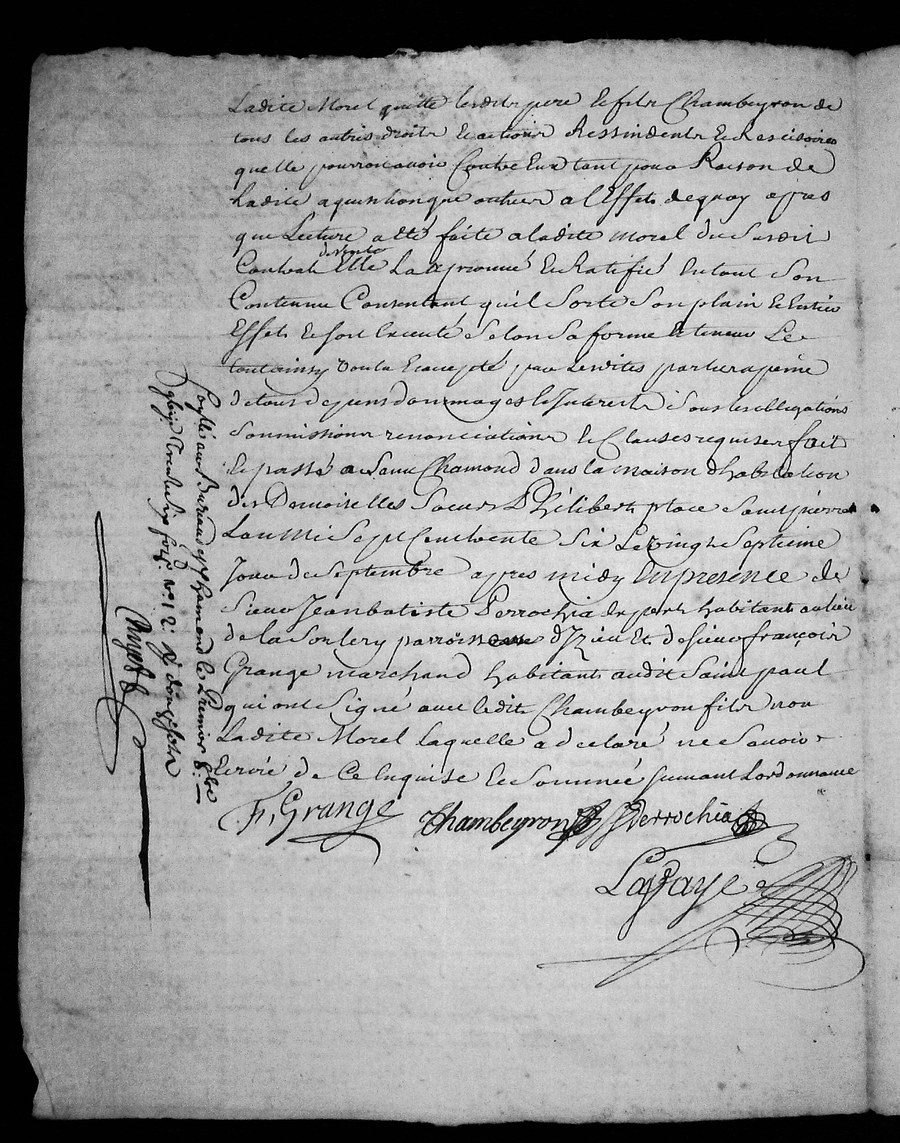 Ladite Morel quitte lesdits pere et fils Chambeyron de
tous les autres droits et actions Ressindents et Rescisoires
quelle pourroit avoir Contre Eux tant pour Raison de
Ladite aquisition que autres a l'Effet de quoy apres
que Lecture a eté faite a ladite Morel du Susdit
Contrat de vente Elle La aprouvé et Ratifié En tout Son
Contenu Consentant qu'il Sorte Son plain et Entier
Effet et soit Executé Selon Sa forme et teneur Le
tout ainsy voulu et accepté par Lesdites parties a peine
de tous depens dommages et Interests Sous les obligations
Soumissions renonciations et Clauses requises fait
et passé a Saint Chamond dans la maison d'habitation
des Demoiselles Soeurs Philibert place Saint pierre
L'an Mil Sept Cent trente Six Le vingt Septieme
Jour de Septembre apres midy En presence de
Sieur Jean batiste Perrochia Expert habitant au lieu
de la Soulery parroisse d'Izieu Et de sieur françois
Grange marchand habitant audit Saint paul
qui ont Signé avec ledit Chambeyron fils non
Ladite Morel laquelle a declaré ne Savoir
Ecrire de Ce Enquise et Sommée suivant Lordonnance
F. Grange Chambeyron Perrochia
LaFaye
au Bureau de St Chamond le Premier 8bre